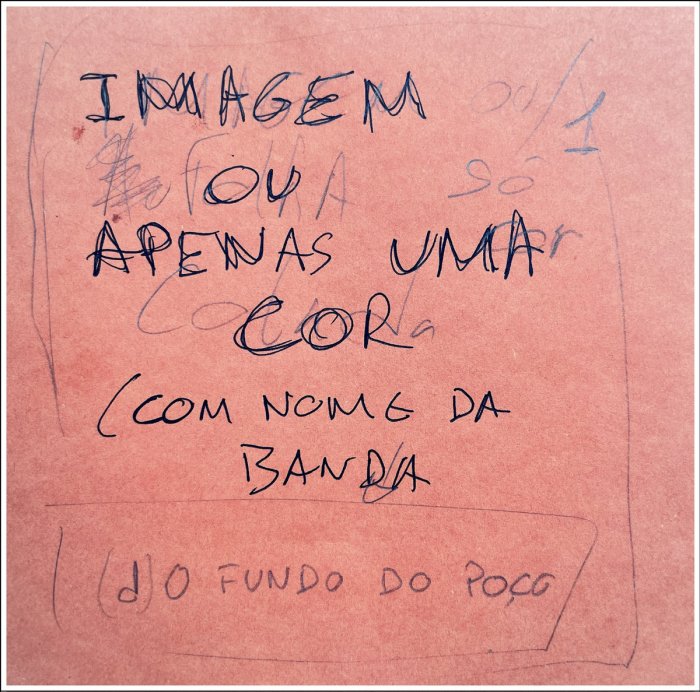 IMAGEM
OU
APENAS UMA
COR
(COM NOME DA
BANDA
(d)O FUNDO DO POÇO